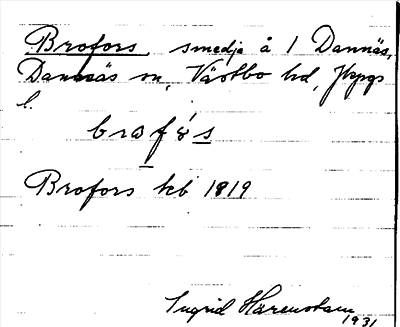 Brofors smedja å 1 Dannäs,
Dannäs sn, Västbo hd, Jkpgs
l.
brofós
Brofors kb 1819
Ingrid Härenstam
1931